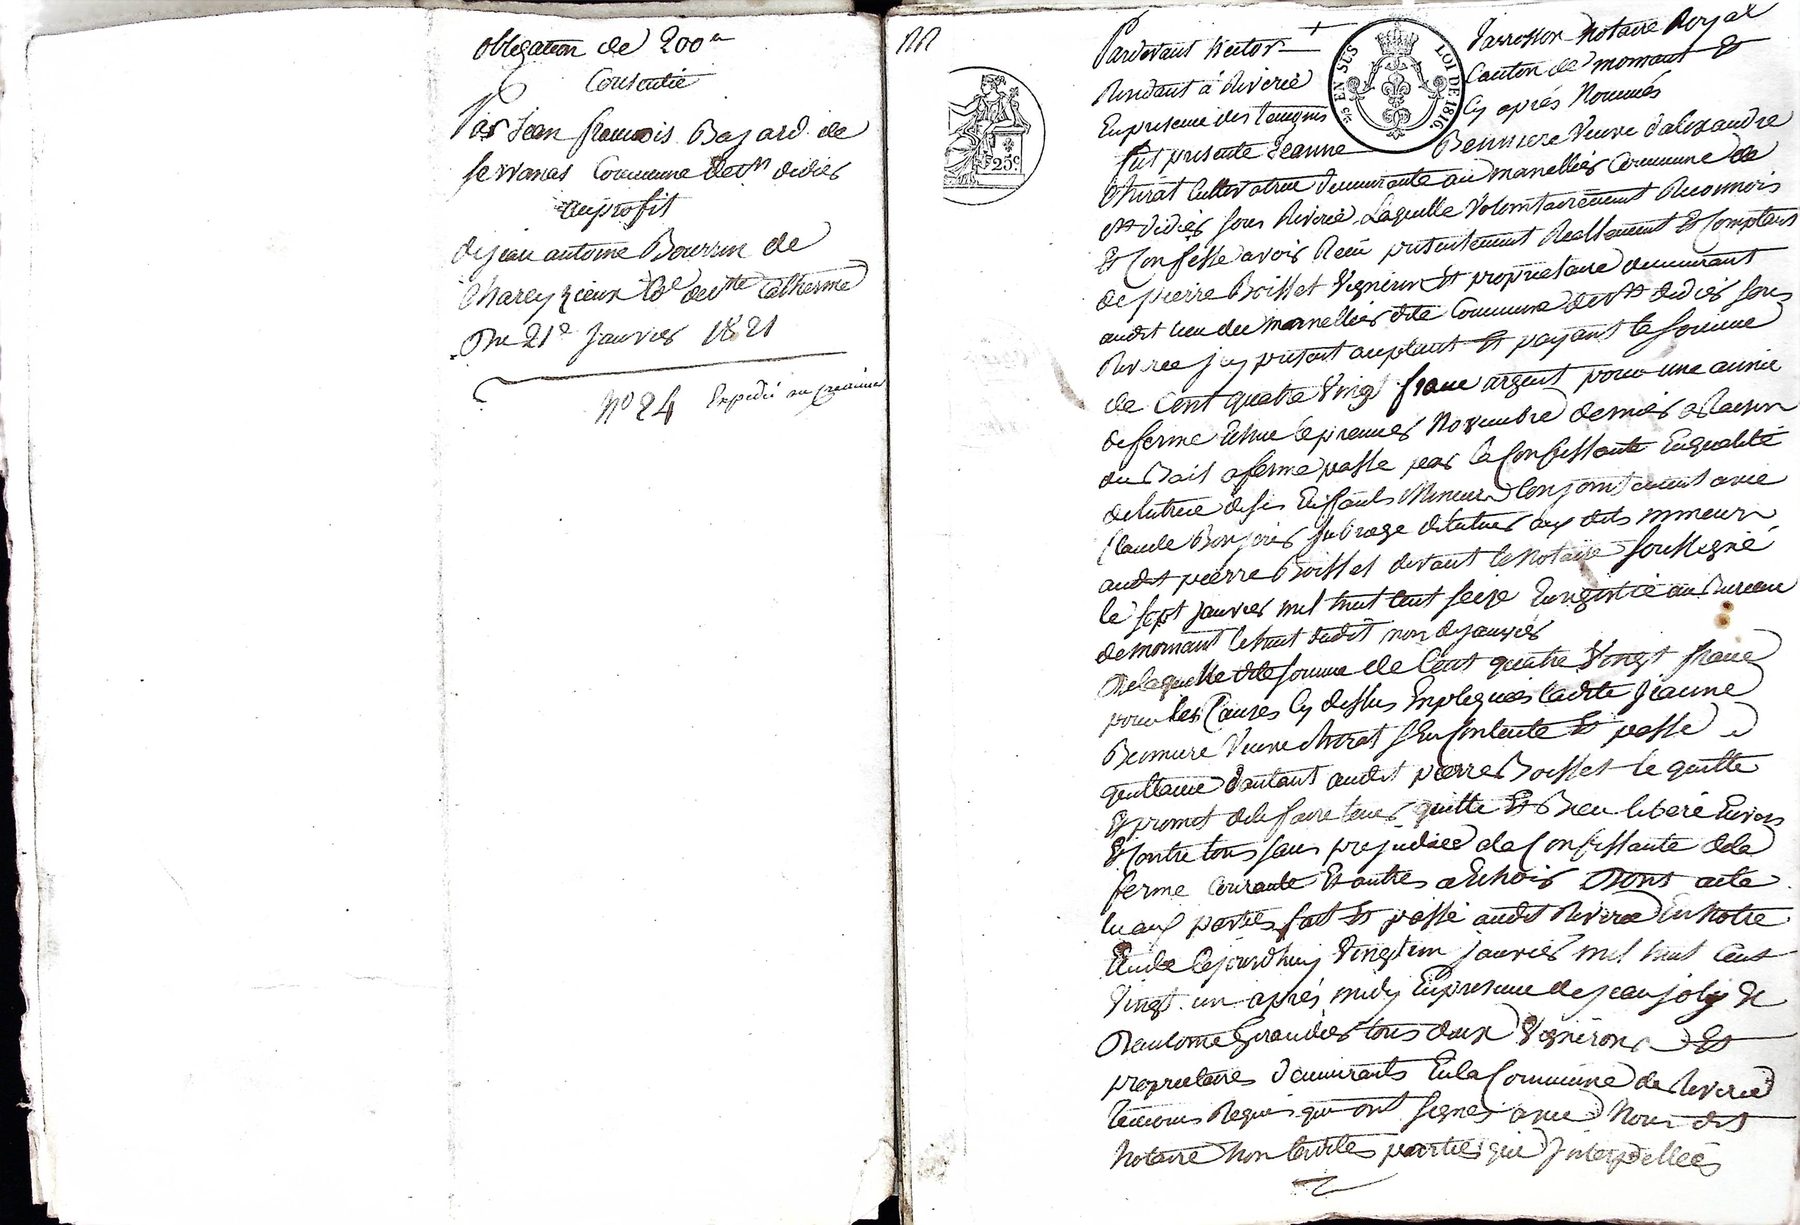 obligation de 200"
Consentie
Par Jean francois Bajard de
servanas Commune de st didier
au profit
de jean antoine Bourrin de
Chareyzieux Cne de ste Catherine
Du 21e Janvier 1821
No 24 Expedié au creancier
Pardevant hector Parrosson Notaire Royal
Residant à Riverie Canton de mornant Et
En presence des temoins Cy aprés Nommés
fut presente Jeanne Benniere Veuve d'alexandre
thirat Cultivatrice demeurante au marnellier Commune de
st didier sous Riverie Laquelle Volontairement Reconnois
Et Confesse avoir Recu presentement Reellement Et Comptant
de pierre Boisset Vigneron Et propriétaire demeurant
audit lieu du marnellier dite Commune de st didier sous
Riverie Icy présent acceptant Et payant la somme
de Cent quatre Vingt franc argent pour une année
de ferme Echue le premier Novembre dernier a Raison
du Bail a ferme passé par la Confessante En qualité
de tutrice de ses Enfants Mineurs Conjointement avec
Claude subrogé tuteur aux dits mineurs
audit pierre Boisset devant le Notaire soussigné
le sept janvier mil huit cent seize Enregistré au Bureau
de mornant le huit dudit mois de janvier
De laquelle dite somme de Cent quatre Vingt franc
pour les Causes Cy dessus Expliquées ladite Jeanne
Benniere Veuve thirat s'En Contente Et passe
quittance d'autant audit pierre Boisset le quitte
Et promet de le faire tenir quitte Et Bien libéré Envers
Et Contre tous sans prejudice a la Confessante de la
ferme Courante Et autres a Echoir Dont acte
lu aux parties fait Et passé audit Riverie En Notre
Etude Cejourd'huy Vingt un janvier mil huit Cent
Vingt un aprés midy En presence de jean joly Et
tous deux Vignerons Et
propriétaires demeurants En la Commune de Riverie
temoins Requis qui ont signés avec Nous dit
Notaire Non lesdites parties qui Interpellées
EN SUS
LOI DE 1816.
25c